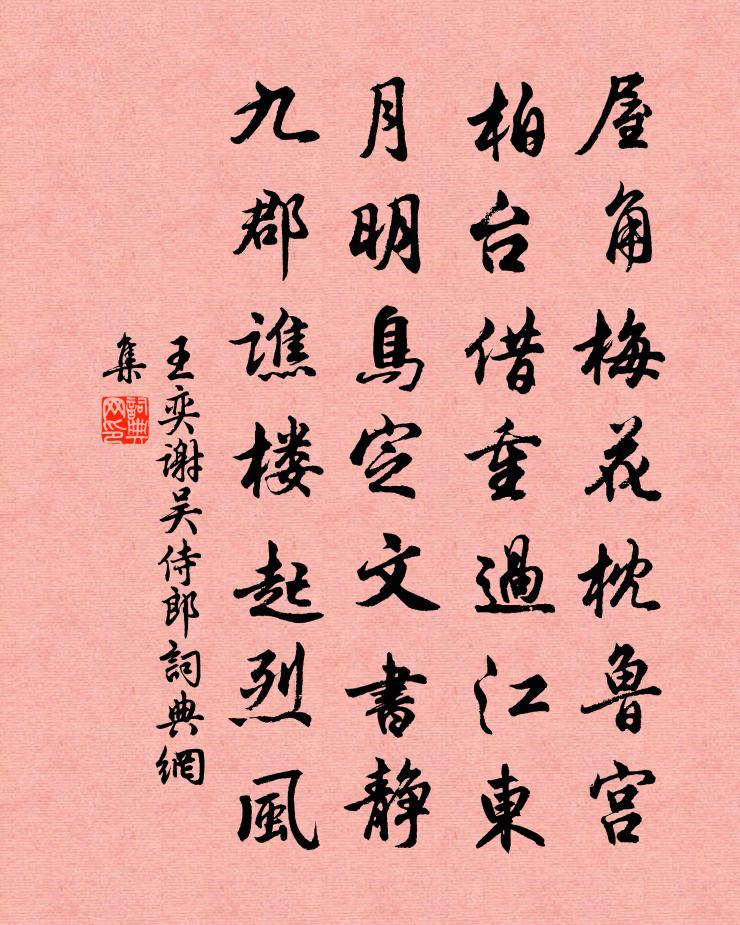 屋角梅花枕鲁宫
柏台借重過江東
月明鳥定文書静
九郡譙楼起烈風
王奕谢吴侍郎詞典網
集
詞典网印